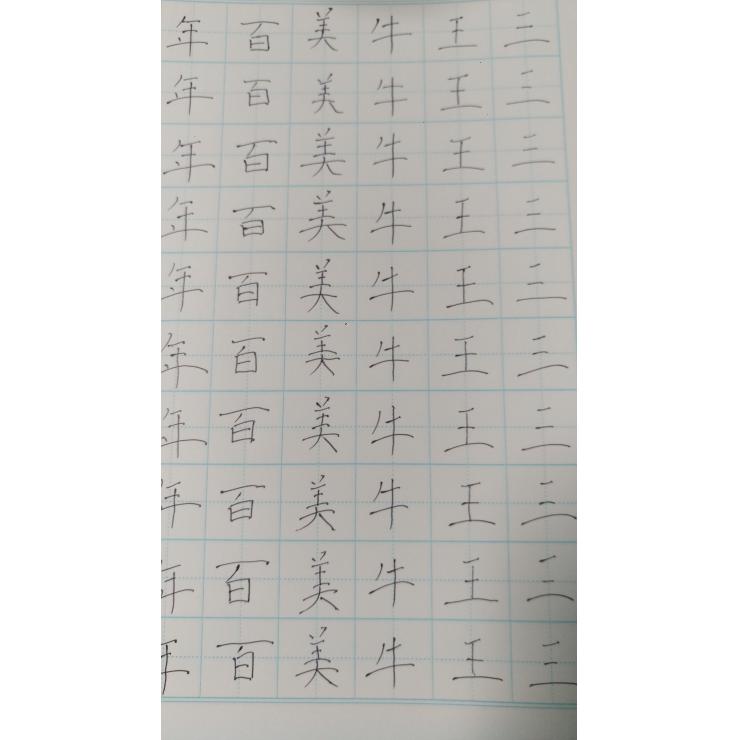 年 百 美 牛 王 三
年 百 美 牛 王 三
年 百 美 牛 王 三
年 百 美 牛 王 三
年 百 美 牛 王 三
年 百 美 牛 王 三
年 百 美 牛 王 三
年 百 美 牛 王 三
年 百 美 牛 王 三
年 百 美 牛 王 三